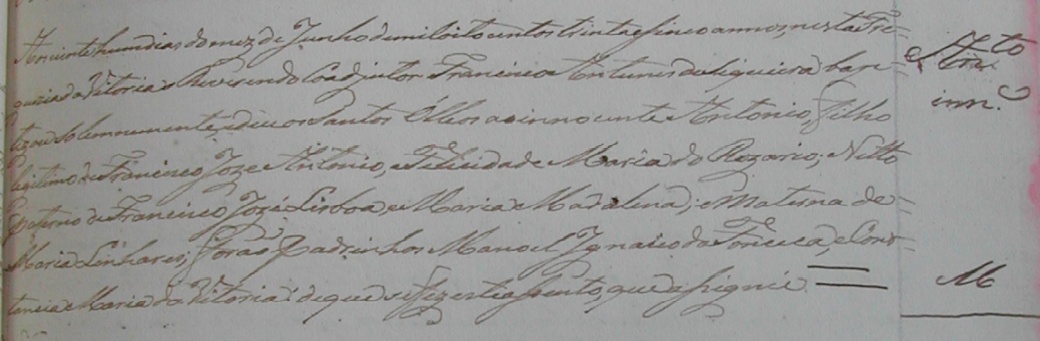 Aos vinte hum dias do mez de Junho de mil oito centos trinta e sinco annos, nesta Fre=
guezia da Vitoria o Reverendo Coadjutor Francisco Antunes de Siqueira bap=
tizou solemnemente, e deu os Santos Olleos ao innocente Antonio, filho
legitimo de Francisco Joze Antonio, e Felicidade Maria do Rozario; Netto
Paterno de Francisco Jozé Lisboa, e Maria Madalena; e Materna de
Maria Linhares; forão Padrinhos Manoel Ignacio da Fonceca, e Cons=
tancia Maria da Vitoria: de que se fez este assento, que assignei.
Anto
inn.e
M